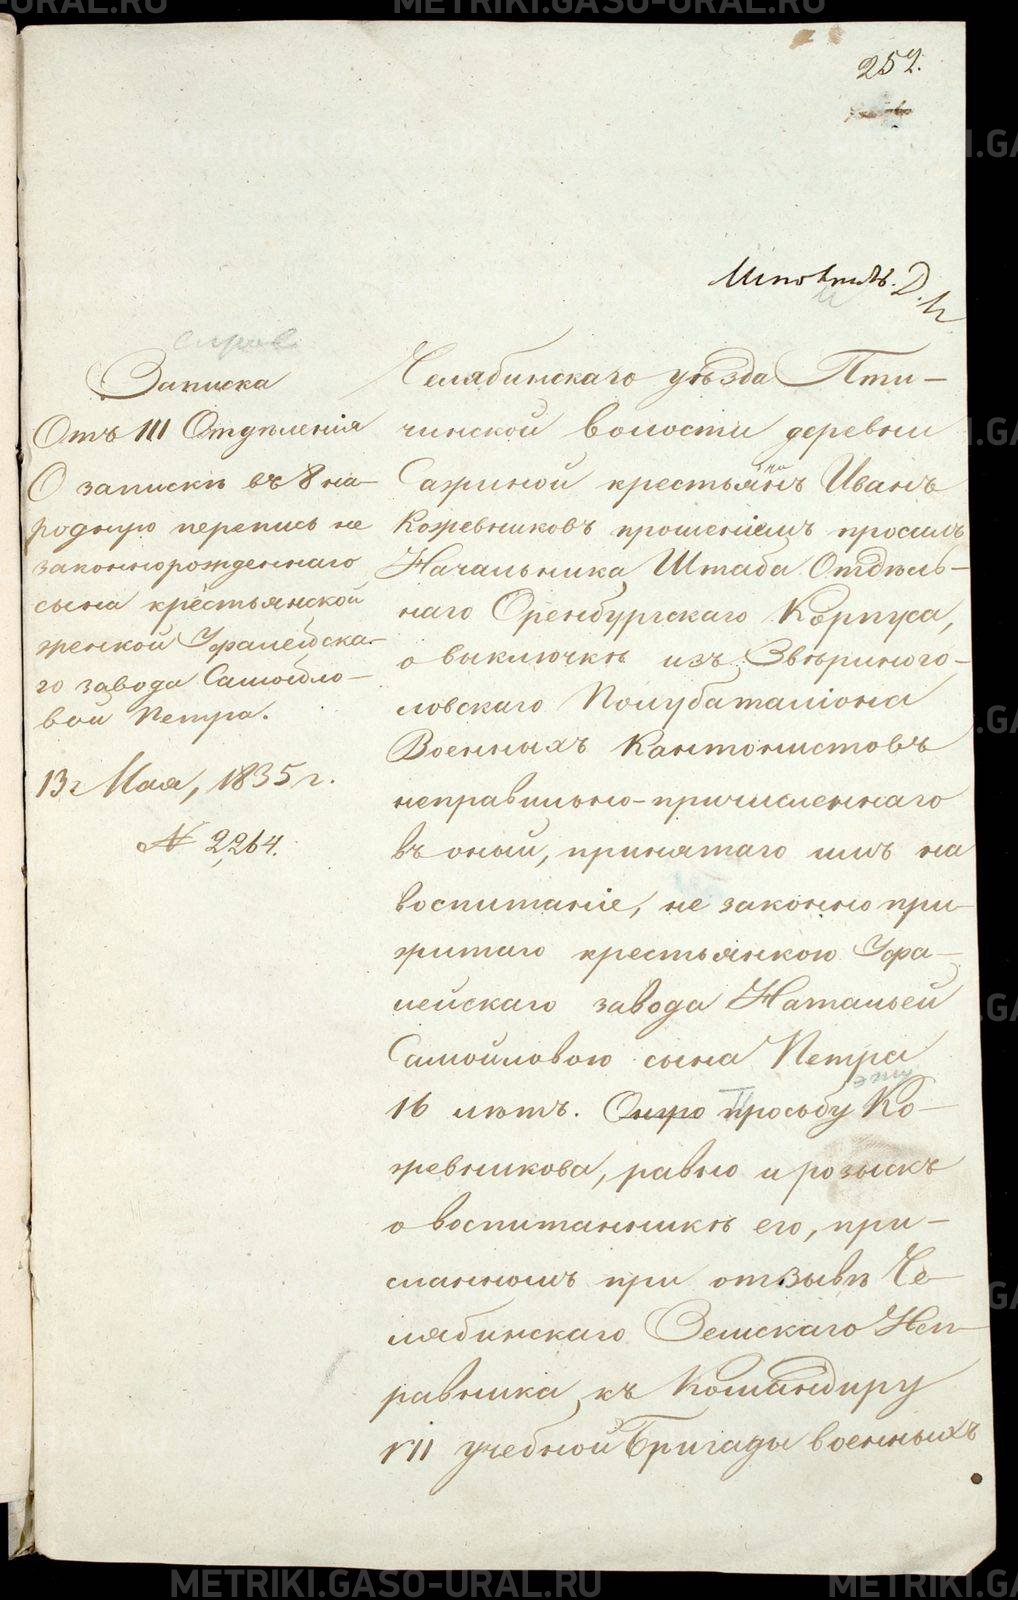 METRIKI.GASO-URAL.RU
257.
Записка
Отъ III Отдѣленія
О запискѣ въ 8 на-
родную перепись не
законнорожденнаго
сына крестьянской
женкой Уфалейска-
го завода Самойло-
вой Петра.
13го Мая, 1835 г.
№ 2,264.
Челябинскаго уѣзда Пти-
чинской волости деревни
Сажиной крестьянинъ Иванъ
Кожевниковъ прошеніемъ просилъ
Начальника Штаба Отдѣль-
наго Оренбургскаго Корпуса,
о выключкѣ изъ Звѣриного-
ловскаго Полубаталіона
Военныхъ Кантонистовъ
неправильно-причисленнаго
въ оный, принятаго имъ на
воспитаніе, не законно при-
житаго крестьянкою Уфа-
лейскаго завода Натальей
Самойловою сына Петра
16 лѣтъ. просьбу Ко-
жевникова, равно и розыскъ
о воспитанникѣ его, при-
сланномъ при отзывѣ Че-
лябинскаго Земскаго Исп-
равника къ Командиру
VII учебной Бригады военныхъ
METRIKI.GASO-URAL.RU